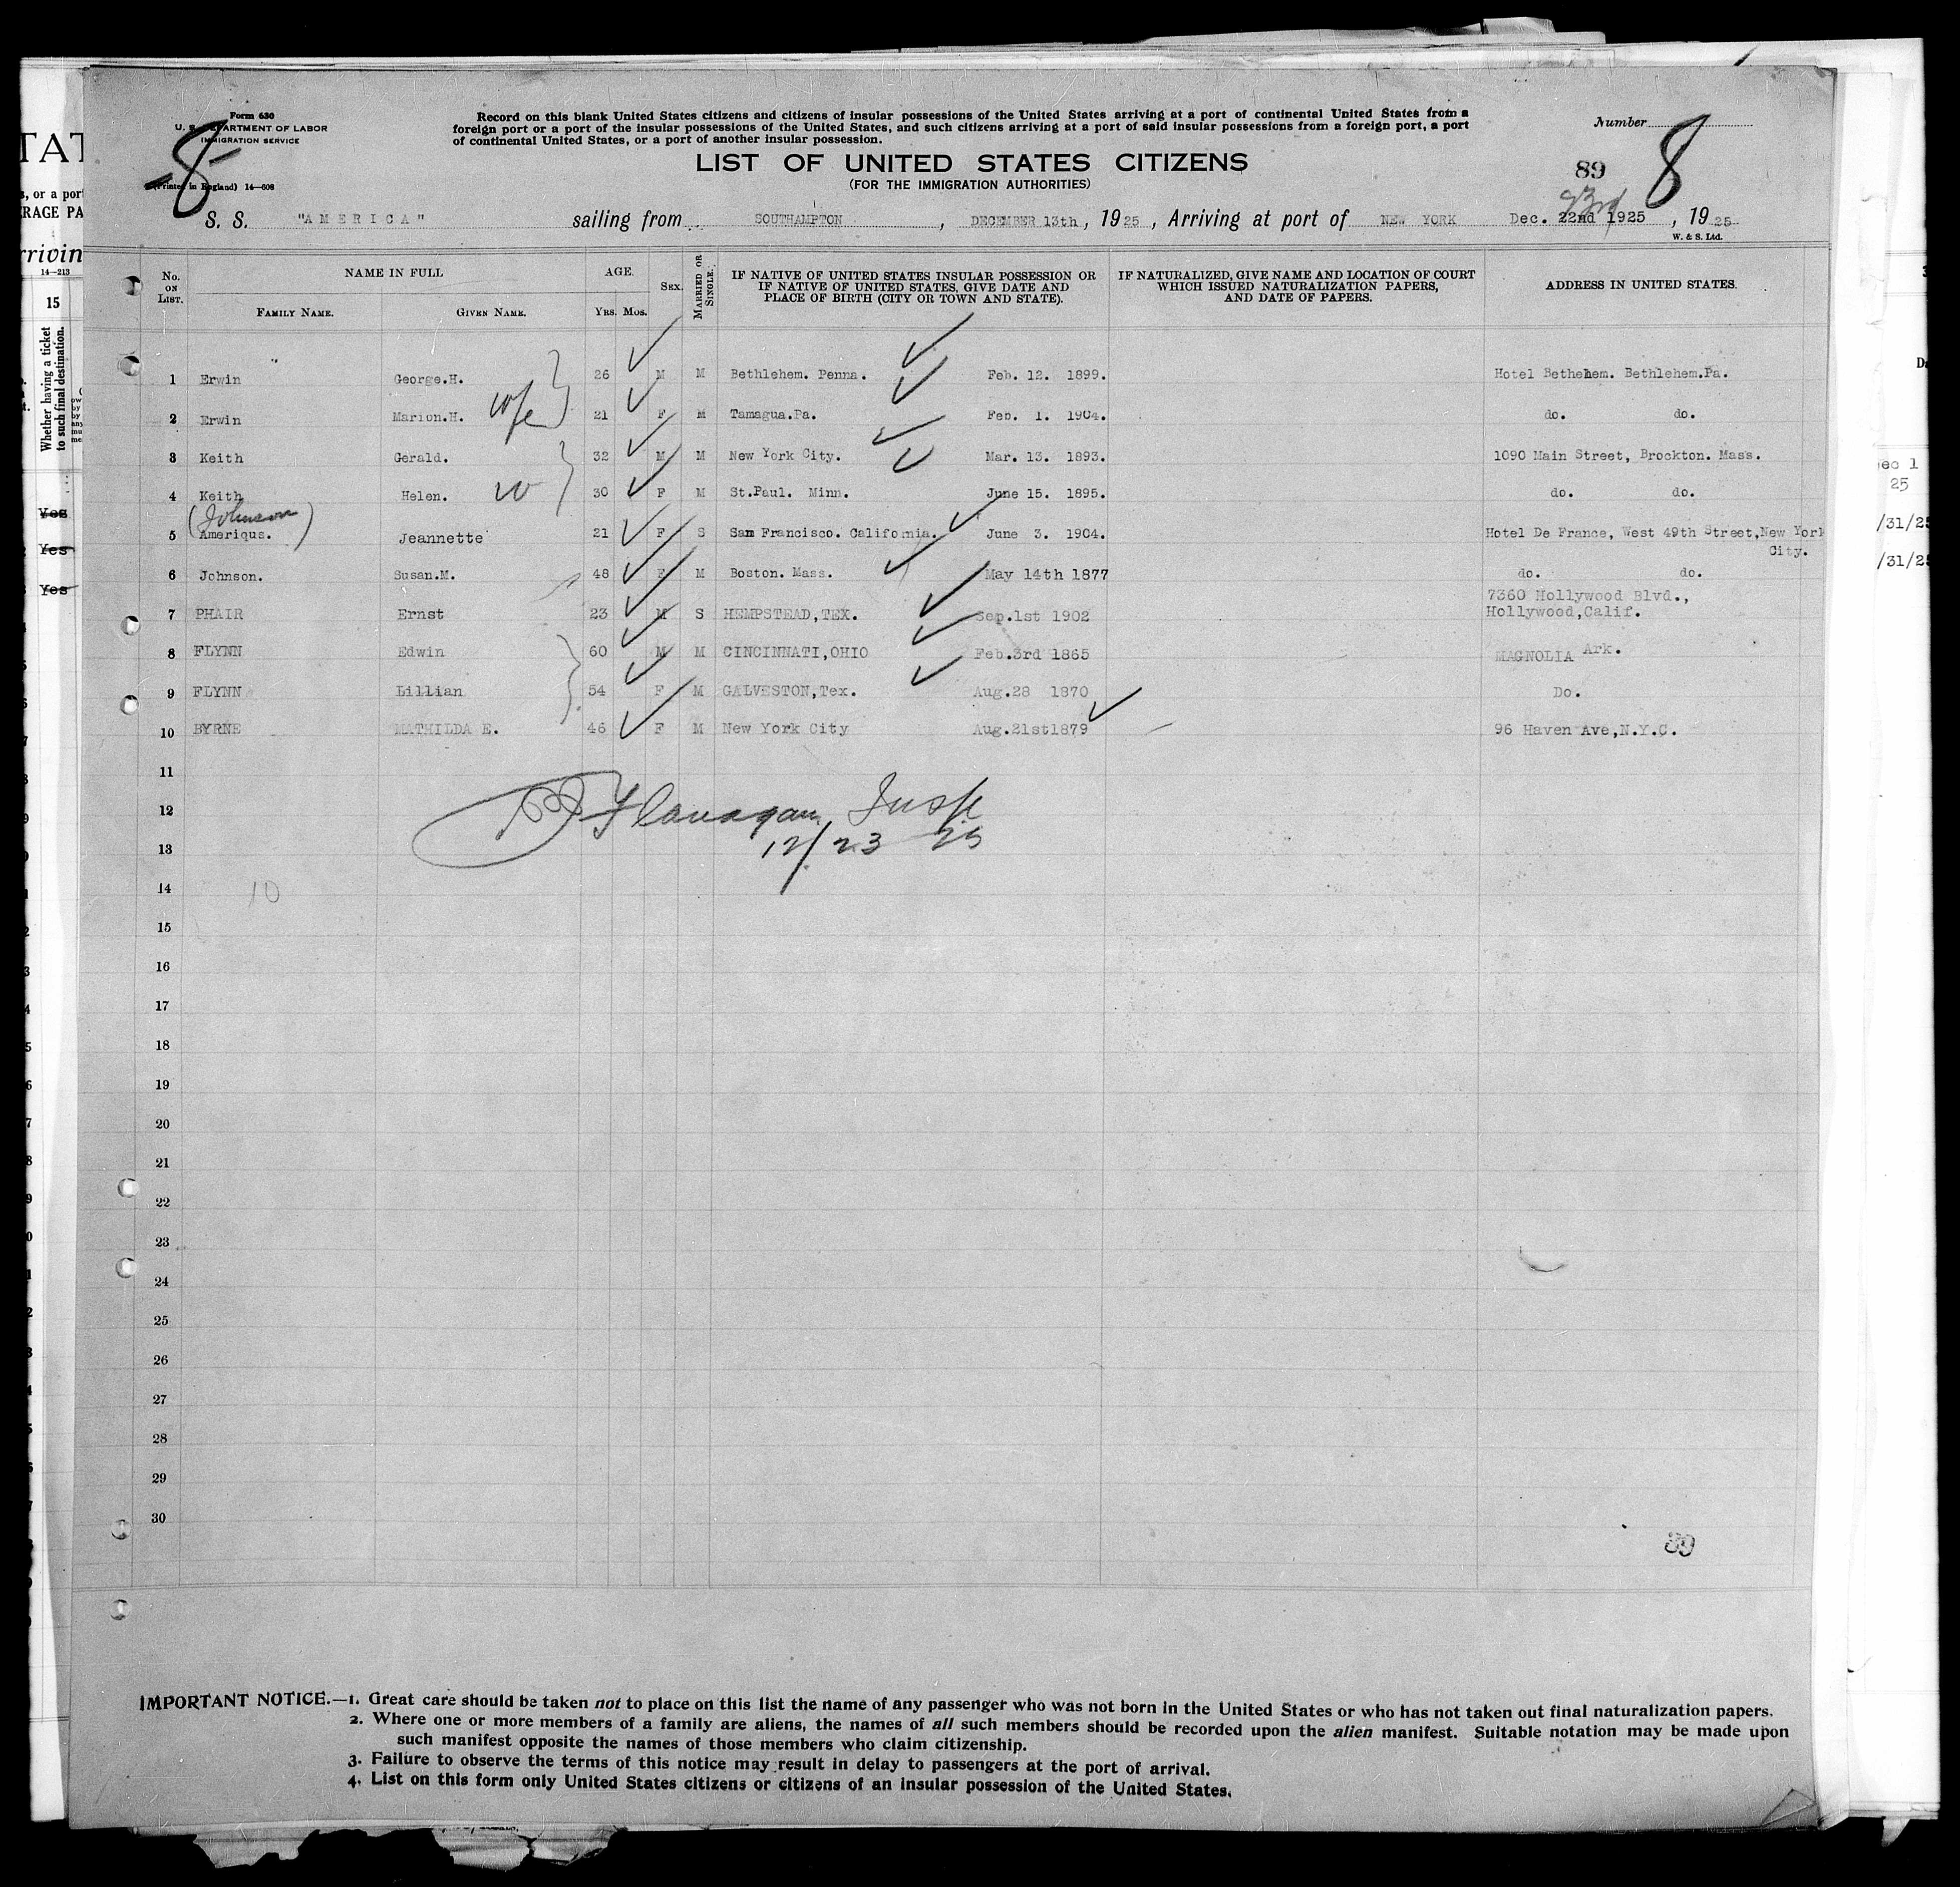 Form 630
U. S. DEPARTMENT OF LABOR
IMMIGRATION SERVICE
(Printed in England) 14—608
8
Record on this blank United States citizens and citizens of insular possessions of the United States arriving at a port of continental United States from a
foreign port or a port of the insular possessions of the United States, and such citizens arriving at a port of said insular possessions from a foreign port, a port
of continental United States, or a port of another insular possession.
Number
LIST OF UNITED STATES CITIZENS
(FOR THE IMMIGRATION AUTHORITIES)
89
8
23rd
S. S. "AMERICA" sailing from SOUTHAMPTON, DECEMBER 13th, 1925, Arriving at port of NEW YORK Dec. 22nd 1925, 1925
W. & S. Ltd.
No. ON LIST.
NAME IN FULL
FAMILY NAME.
GIVEN NAME.
AGE.
YRS. MOS.
SEX.
MARRIED OR SINGLE.
IF NATIVE OF UNITED STATES INSULAR POSSESSION OR
IF NATIVE OF UNITED STATES, GIVE DATE AND
PLACE OF BIRTH (CITY OR TOWN AND STATE).
IF NATURALIZED, GIVE NAME AND LOCATION OF COURT
WHICH ISSUED NATURALIZATION PAPERS,
AND DATE OF PAPERS.
ADDRESS IN UNITED STATES.
1 Erwin George.H. 26 M M Bethlehem. Penna. Feb. 12. 1899. Hotel Bethehem. Bethlehem.Pa.
2 Erwin Marion.H. wfe 21 F M Tamagua.Pa. Feb. 1. 1904. do. do.
3 Keith Gerald. 32 M M New York City. Mar. 13. 1893. 1090 Main Street, Brockton. Mass.
4 Keith Helen. w 30 F M St.Paul. Minn. June 15. 1895. do. do.
(Johnson)
5 Ameriqus. Jeannette 21 F S San Francisco. California. June 3. 1904. Hotel De France, West 49th Street,New York
City.
6 Johnson. Susan.M. 48 F M Boston. Mass. May 14th 1877 do. do.
7360 Hollywood Blvd.,
7 PHAIR Ernst 23 M S HEMPSTEAD,TEX. Sep.1st 1902 Hollywood,Calif.
8 FLYNN Edwin 60 M M CINCINNATI,OHIO Feb.3rd 1865 MAGNOLIA Ark.
9 FLYNN Lillian 54 F M GALVESTON,Tex. Aug.28 1870 Do.
10 BYRNE MATHILDA E. 46 F M New York City Aug.21st1879 96 Haven Ave,N.Y.C.
11
12 Flanagan Insp
13 12/23 25
14 10
15
16
17
18
19
20
21
22
23
24
25
26
27
28
29
30
89
IMPORTANT NOTICE.—1. Great care should be taken not to place on this list the name of any passenger who was not born in the United States or who has not taken out final naturalization papers.
2. Where one or more members of a family are aliens, the names of all such members should be recorded upon the alien manifest. Suitable notation may be made upon
such manifest opposite the names of those members who claim citizenship.
3. Failure to observe the terms of this notice may result in delay to passengers at the port of arrival.
4. List on this form only United States citizens or citizens of an insular possession of the United States.
14—213
15
Whether having a ticket
to such final destination.
Yes
Yes
Yes
25
/31/25